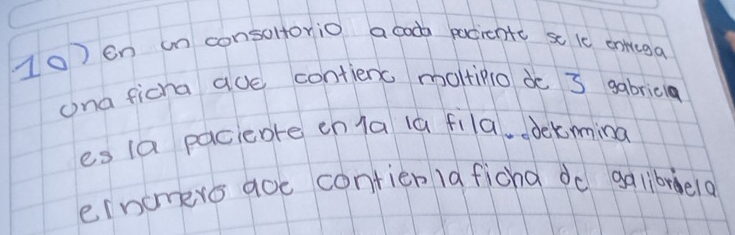 10) en un consultorio a cada paciente se le entrega
una ficha que contiene multiplo de 3 gabriela
es la paciente en la la fila.. determina
el numero que contien la ficha de galibriela